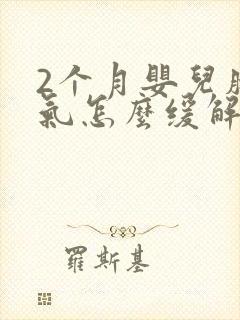 2个月嬰兒脹
氣怎麼緩解
羅斯基